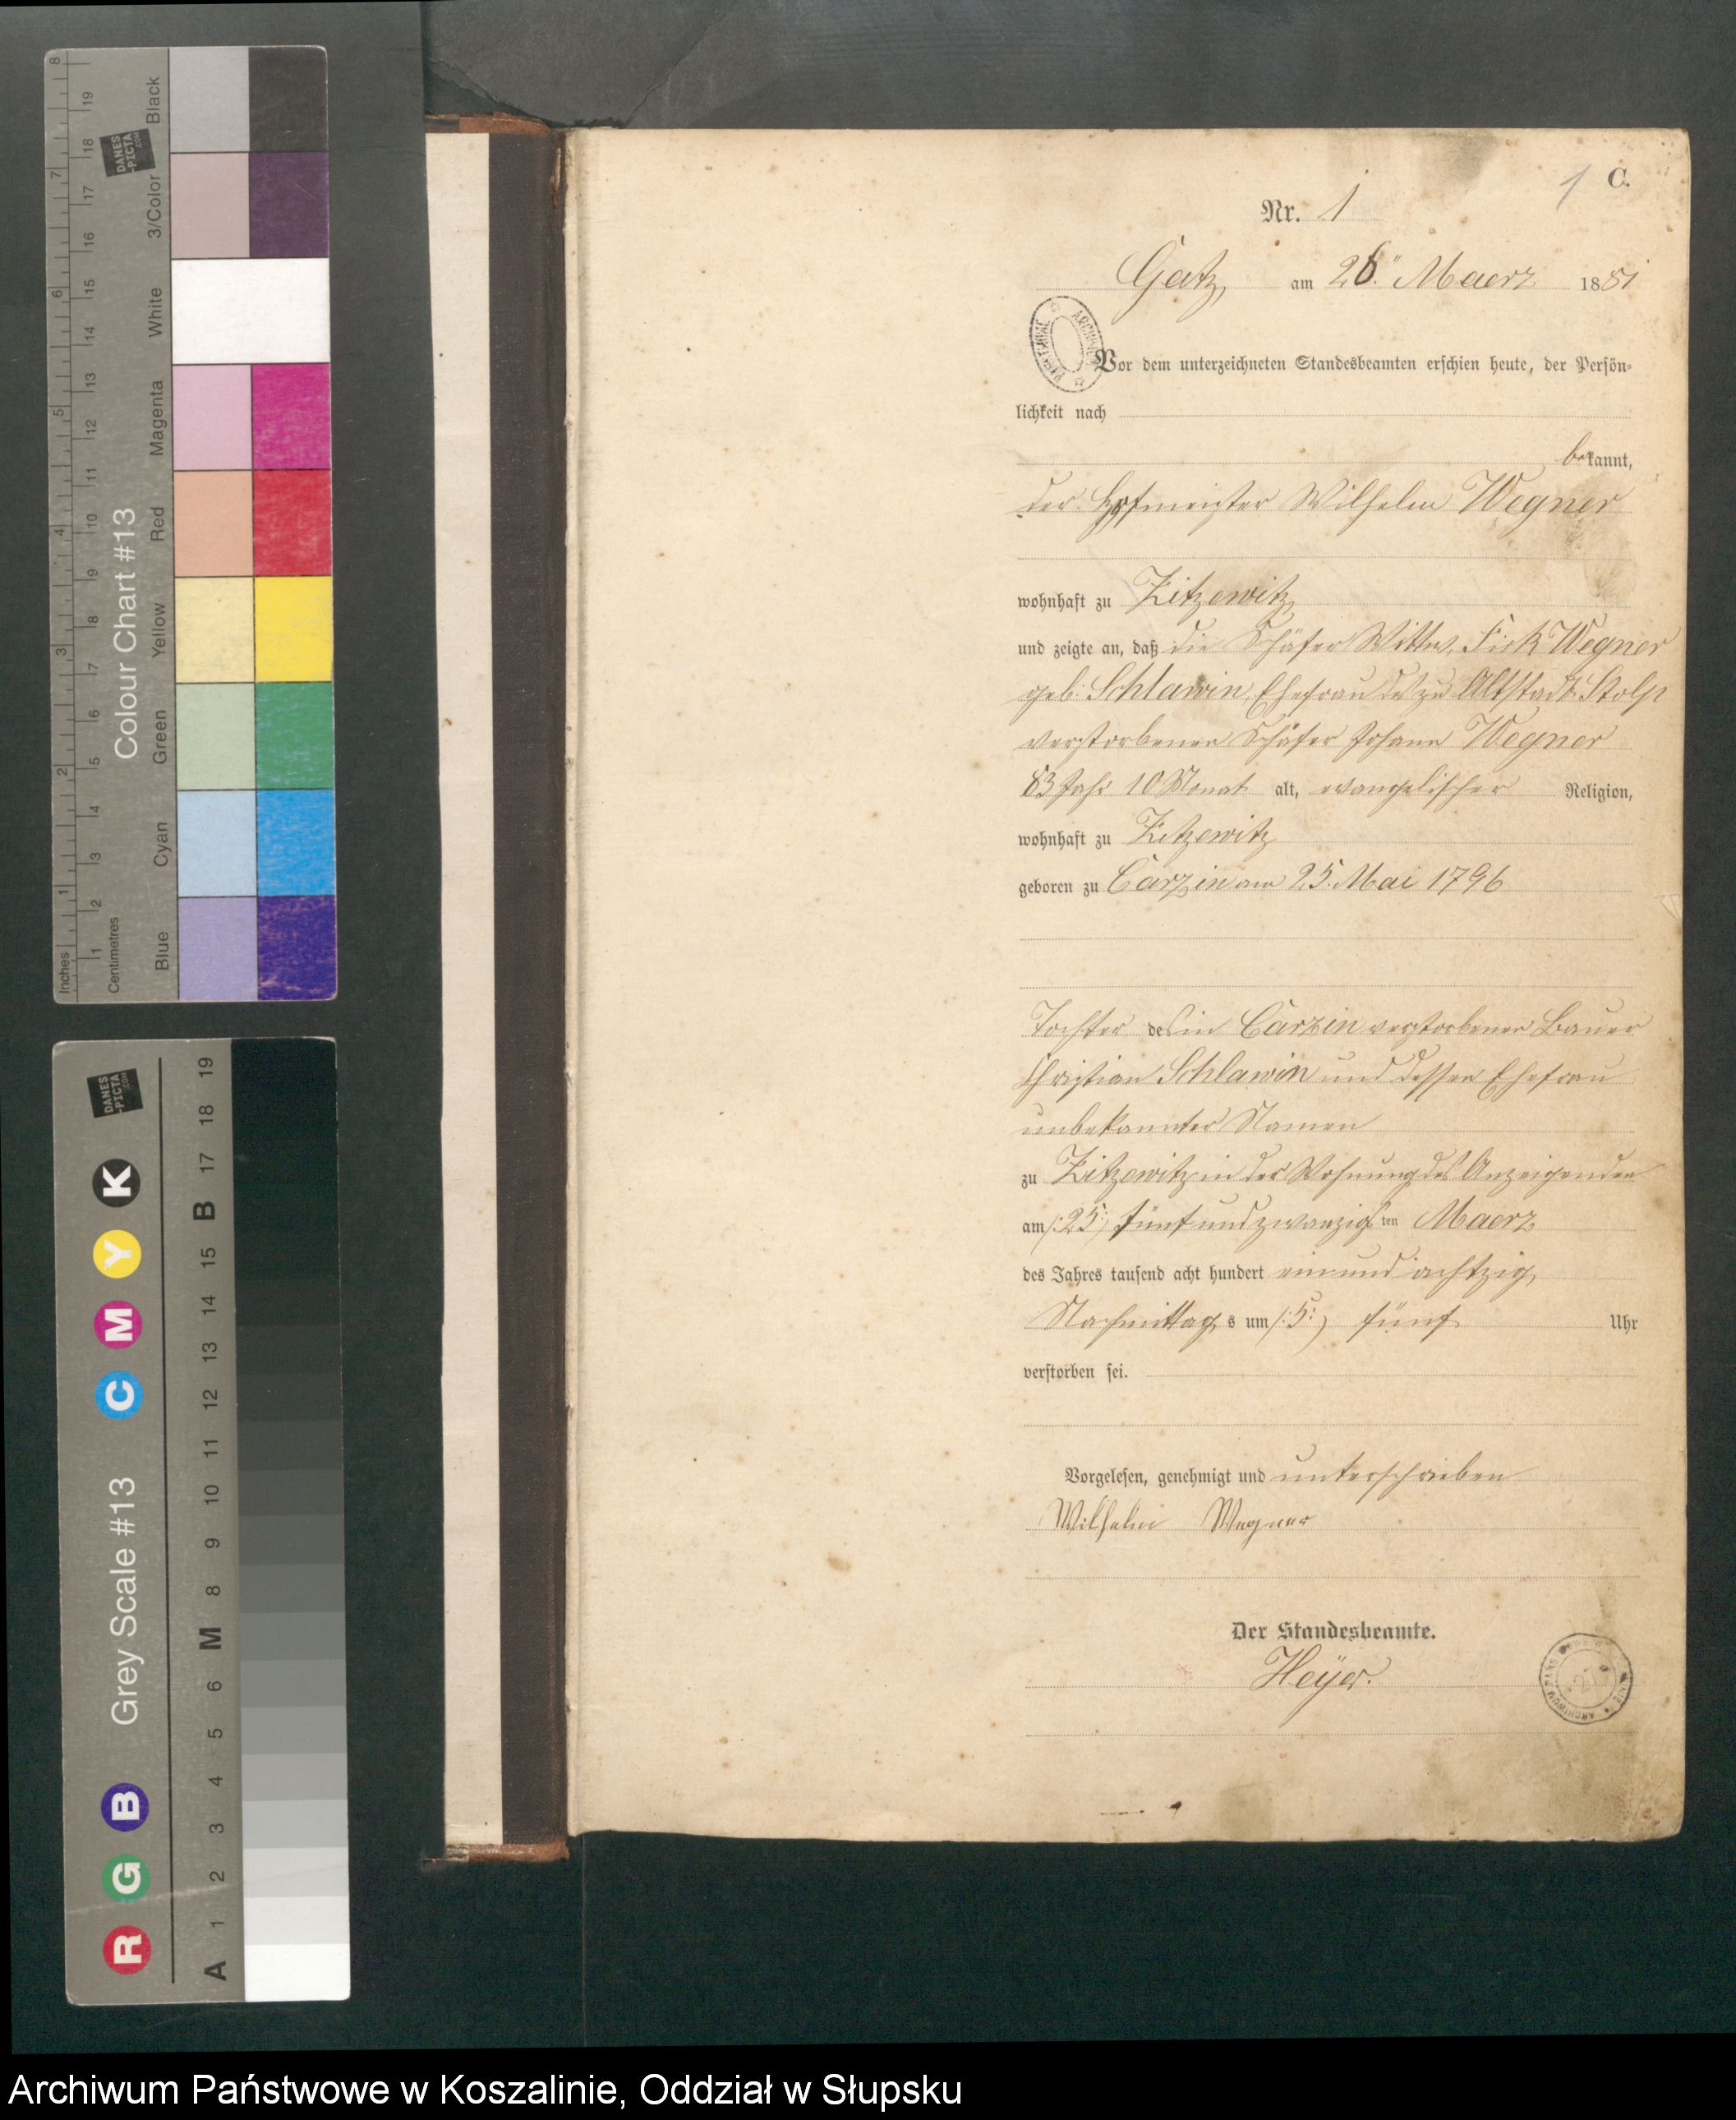 8
7
6
5
4
3
2
1
Inches
19
18
17
16
15
14
13
12
11
10
9
8
7
6
5
4
3
2
1
Centimetres
Colour Chart #13
DANES
-PICTA
.COM
Black
3/Color
White
Magenta
Red
Yellow
Green
Cyan
Blue
DANES
-PICTA
.COM
K
Y
M
C
Grey Scale #13
B
G
R
19
18
17
B
15
14
13
12
11
10
9
8
M
6
5
4
3
2
1
A
1 C.
Nr. 1
Gatz am 26. Maerz 1881
Vor dem unterzeichneten Standesbeamten erschien heute, der Persön-
lichkeit nach
bekannt,
der Hofmeister Wilhelm Wegner
wohnhaft zu Zitzewitz
und zeigte an, daß die Schäfer Wittwe, Wegner
geb. Schlawin, Ehefrau des zu Altstadt Stolp
verstorbenen Schäfer Johann Wegner
83 Jahr 10 Monat alt, evangelischer Religion,
wohnhaft zu Zitzewitz
geboren zu Carzin am 25. Mai 1796
Tochter des in Carzin verstorbenen Bauer
Christian Schlawin und dessen Ehefrau
unbekannter Namen
zu Zitzewitz in der Wohnung des Anzeigenden
am /:25:/ fünf und zwanzigsten Maerz
des Jahres tausend acht hundert ein und achtzig
Nachmittags um /:5:/ fünf Uhr
verstorben sei.
Vorgelesen, genehmigt und unterschrieben
Wilhelm Wegner
Der Standesbeamte.
Heÿer.
Archiwum Państwowe w Koszalinie, Oddział w Słupsku